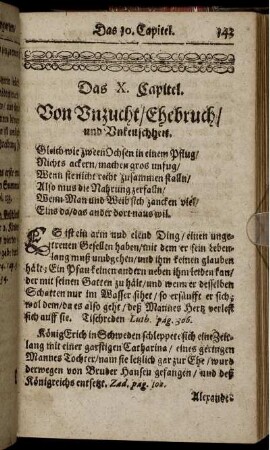 Das 10. Capitel. 143
Das X. Capitel.
Von Vnzucht/Ehebruch/
und Vnkeuschheit.
Gleich wie zween Ochsen in einem Pflug/
Nichts ackern/machen gros unfug/
Wenn sie nicht recht zusammen stalln/
Also mus die Nahrung zerfalln/
Wenn Man und Weib sich zancken viel/
Eins da/das ander dort naus wil.
ES ist ein arm und elend Ding/einen unge-
treuen Gesellen haben/mit dem er sein leben-
lang muß umbgehen/und ihm keinen glauben
hält; Ein Pfau kein andern neben ihm leiden kan/
der mit seinen Gatten zu hält/und wenn er desselben
Schatten nur im Wasser sihet/so ersäufft er sich;
wol dem/da es also geht/deß Mannes Hertz verlest
sich auff sie. Tischreden Luth. pag. 306.
König Erich in Schweden schleppete sich eine Zeit-
lang mit einer garstigen Catharina/eines geringen
Mannes Tochter/nam sie letzlich gar zur Ehe/wurd
derwegen von Bruder Hansen gefangen/und deß
Königreichs entsetzt. Zad. pag. 102.
Alexander